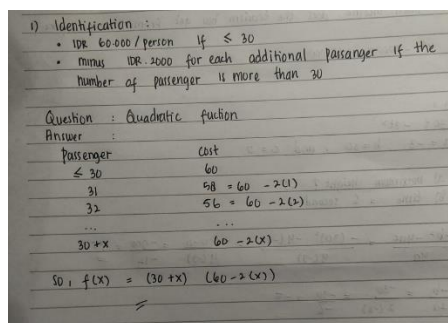 1) Identification :
• IDR 60.000 / person if ≤ 30
• minus IDR. 2000 for each additional passanger if the
number of passenger is more than 30
Question : Quadratic fuction
Answer :
Passenger cost
≤ 30 60
31 58 = 60 - 2(1)
32 56 = 60 - 2(2)
... ...
30 + x 60 - 2(x)
So, f(x) = (30 + x) (60 - 2(x))